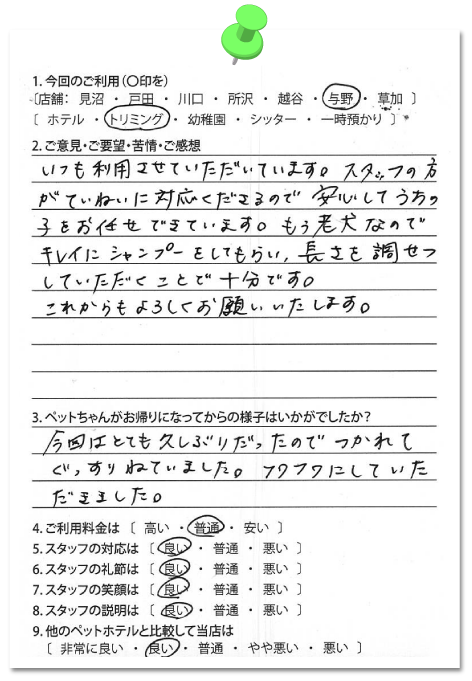 1. 今回のご利用(〇印を)
〔店舗: 見沼 ・ 戸田 ・ 川口 ・ 所沢 ・ 越谷 ・ 与野 ・ 草加 〕
[ ホテル ・ トリミング ・ 幼稚園 ・ シッター ・ 一時預かり ]
2. ご意見・ご要望・苦情・ご感想
いつも利用させていただいています。スタッフの方
がていねいに対応くださるので安心してうちの
子をお任せできています。もう老犬なので
キレイにシャンプーをしてもらい、長さを調せつ
していただくことで十分です。
これからもよろしくお願いいたします。
3. ペットちゃんがお帰りになってからの様子はいかがでしたか?
今回はとても久しぶりだったのでつかれて
ぐっすりねていました。フワフワにしていた
だきました。
4. ご利用料金は 〔 高い ・ 普通 ・ 安い 〕
5. スタッフの対応は 〔 良い ・ 普通 ・ 悪い 〕
6. スタッフの礼節は 〔 良い ・ 普通 ・ 悪い 〕
7. スタッフの笑顔は 〔 良い ・ 普通 ・ 悪い 〕
8. スタッフの説明は 〔 良い ・ 普通 ・ 悪い 〕
9. 他のペットホテルと比較して当店は
〔 非常に良い ・ 良い ・ 普通 ・ やや悪い ・ 悪い 〕